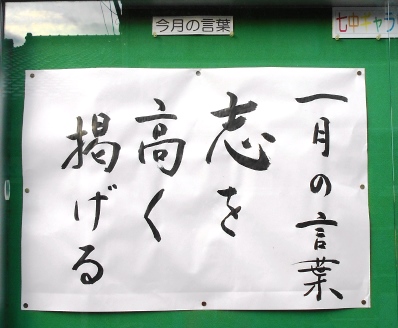 今月の言葉
七中ギャラ
一月の言葉
志を
高く
掲げる